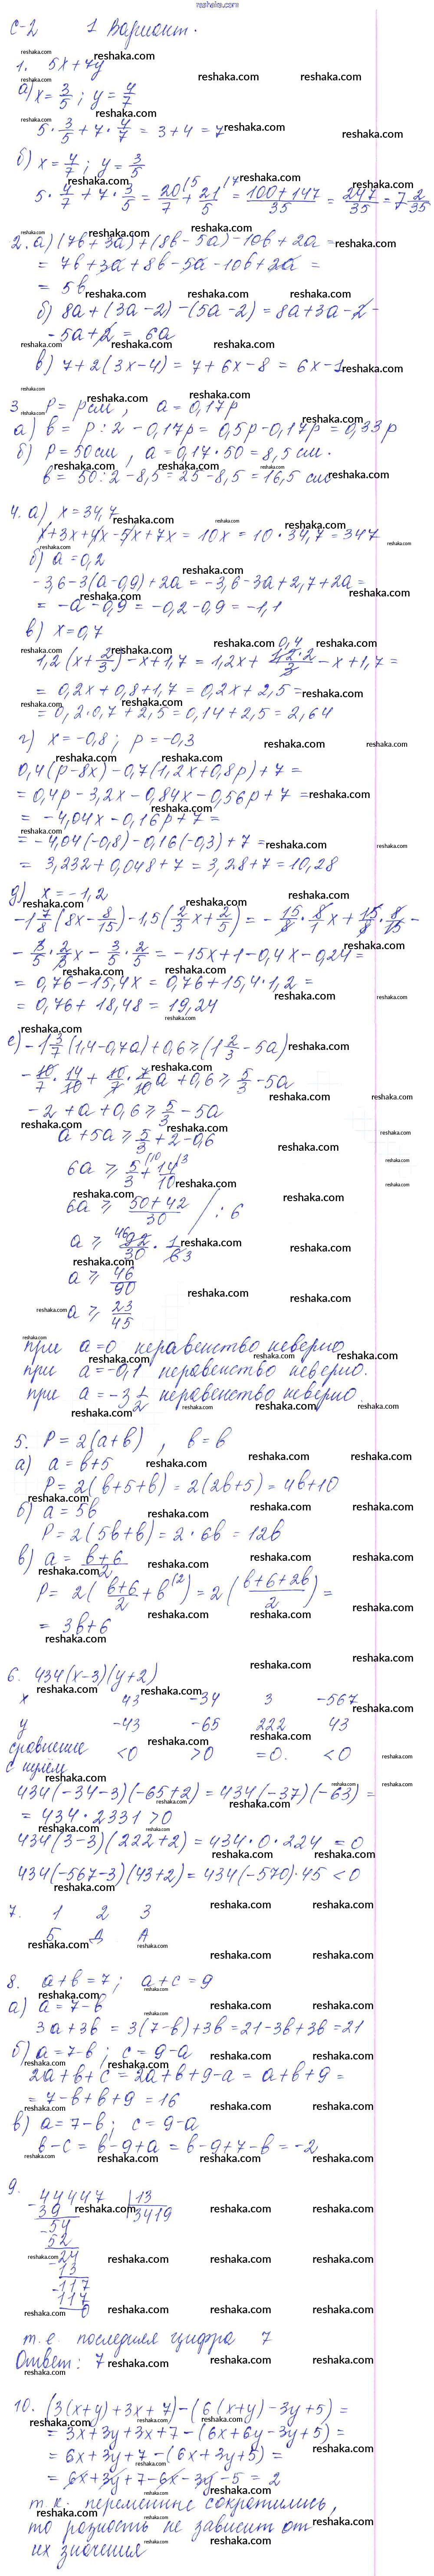 reshaka.com
С-2 1 Вариант.
1. 5x+7y
а) x = 3/5 ; y = 4/7
5 · 3/5 + 7 · 4/7 = 3+4 = 7
б) x = 4/7 ; y = 3/5
5 · 4/7 + 7 · 3/5 = 20/7 (5 + 21/5 (7 = 100+147/35 = 247/35 = 7 2/35
2. а) (7b+3a)+(8b-5a)-10b+2a =
= 7b+3a+8b-5a-10b+2a =
= 5b
б) 8a+(3a-2)-(5a-2) = 8a+3a-2-
-5a+2 = 6a
в) 7+2(3x-4) = 7+6x-8 = 6x-1
3. P = p см, a = 0,17p
а) b = p : 2 - 0,17p = 0,5p-0,17p = 0,33p
б) P = 50 см, a = 0,17·50 = 8,5 см.
b = 50:2-8,5 = 25-8,5 = 16,5 см
4. а) x = 34,7
x+3x+4x-5x+7x = 10x = 10·34,7 = 347
б) a = 0,2
-3,6-3(a-0,9)+2a = -3,6-3a+2,7+2a =
= -a-0,9 = -0,2-0,9 = -1,1
в) x = 0,7
1,2(x+2/3)-x+1,7 = 1,2x + 0,4 1,2·2/3 - x+1,7 =
= 0,2x+0,8+1,7 = 0,2x+2,5 =
= 0,2·0,7+2,5 = 0,14+2,5 = 2,64
г) x = -0,8 ; p = -0,3
0,4(p-8x)-0,7(1,2x+0,8p)+7 =
= 0,4p-3,2x-0,84x-0,56p+7 =
= -4,04x-0,16p+7 =
= -4,04(-0,8)-0,16(-0,3)+7 =
= 3,232+0,048+7 = 3,28+7 = 10,28
д) x = -1,2
-1 7/8 (8x - 8/15) - 1,5(2/3 x + 2/5) = - 15/8 · 8/1 x + 15/8 · 8/15 -
- 3/5 · 2/3 x - 3/5 · 2/5 = -15x+1-0,4x-0,24 =
= 0,76-15,4x = 0,76+15,4·1,2 =
= 0,76+18,48 = 19,24
е) -1 3/7 (1,4-0,7a)+0,6 ≥ (1 2/3 - 5a)
- 10/7 · 14/10 + 10/7 · 7/10 a + 0,6 ≥ 5/3 - 5a
-2+a+0,6 ≥ 5/3 - 5a
a+5a ≥ 5/3 + 2-0,6
6a ≥ 5/3 (10 + 14/10 (3
6a ≥ 50+42/30 / : 6
a ≥ 46 92/30 · 1/6 3
a ≥ 46/90
a ≥ 23/45
при a = 0 неравенство неверно
при a = -0,1 неравенство неверно.
при a = -3 1/2 неравенство неверно.
5. P = 2(a+b) , b = b
а) a = b+5
P = 2(b+5+b) = 2(2b+5) = 4b+10
б) a = 5b
P = 2(5b+b) = 2·6b = 12b
в) a = b+6/2
P = 2(b+6/2 + b (2) = 2(b+6+2b/2) =
= 3b+6
6. 434(x-3)(y+2)
x 43 -34 3 -567
y -43 -65 222 43
сравнение с нулём <0 >0 =0. <0
434(-34-3)(-65+2) = 434(-37)(-63) =
= 434·2331 >0
434(3-3)(222+2) = 434·0·224 = 0
434(-567-3)(43+2) = 434(-570)·45 <0
7. 1 2 3
Б Д А
8. a+b = 7 ; a+c = 9
а) a = 7-b
3a+3b = 3(7-b)+3b = 21-3b+3b = 21
б) a = 7-b ; c = 9-a
2a+b+c = 2a+b+9-a = a+b+9 =
= 7-b+b+9 = 16
в) a = 7-b ; c = 9-a
b-c = b-9+a = b-9+7-b = -2
9.
44447 | 13
-39 3419
-54
52
-24
13
-117
117
0
т.е. последняя цифра 7
Ответ: 7
10. (3(x+y)+3x+7)-(6(x+y)-3y+5) =
= 3x+3y+3x+7-(6x+6y-3y+5) =
= 6x+3y+7-(6x+3y+5) =
= 6x+3y+7-6x-3y-5 = 2
т.к. переменные сократились,
то разность не зависит от
их значения